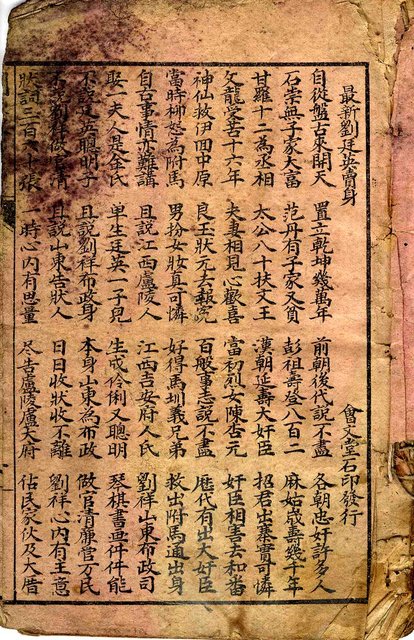 最新劉廷英賣身 會文堂石印發行
自從盤古來開天 置立乾坤幾萬年 前朝後代說不盡 各朝忠奸許多人
石崇無子家大富 范丹有子家又貧 彭祖壽登八百二 麻姑歲壽幾千年
甘羅十二為丞相 太公八十扶文王 漢朝延壽大奸臣 招君出塞實可憐
文龍受苦十六年 夫妻相見心歡喜 當初烈女陳杏元 奸臣相害去和番
神仙救伊囬中原 良玉狀元去報冤 百般事志說不盡 歷代有出大奸臣
當時柳惡為附馬 男扮女妝真可憐 好得馬圳義兄弟 救出附馬通出身
自古事情亦難講 且說江西盧陵人 江西吉安府人氏 劉祥山東布政司
娶一夫人是金氏 单生廷英一子兒 生成伶俐又聰明 琴棋書画件件能
不說廷英聰明子 且說劉祥布政身 本身山東為布政 做官清廉營万民
不說劉祥做官清 且說山東告狀人 日日收狀收不離 劉祥心內有主意
狀詞三百六十張 一時心內有思量 尽告盧陵盧大府 佔民家伙及大厝